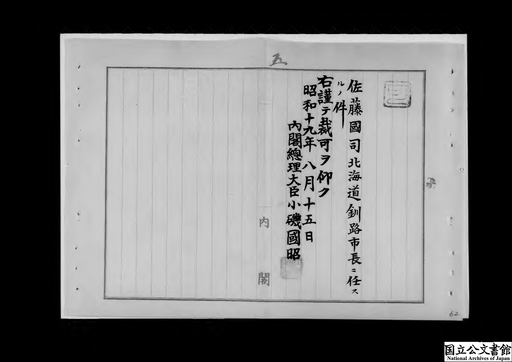 五
佐藤國司北海道釧路市長ニ任ス
ルノ件
右謹テ裁可ヲ仰ク
昭和十九年八月十五日
内閣總理大臣小磯國昭
内閣
62
国立公文書館
National Archives of Japan